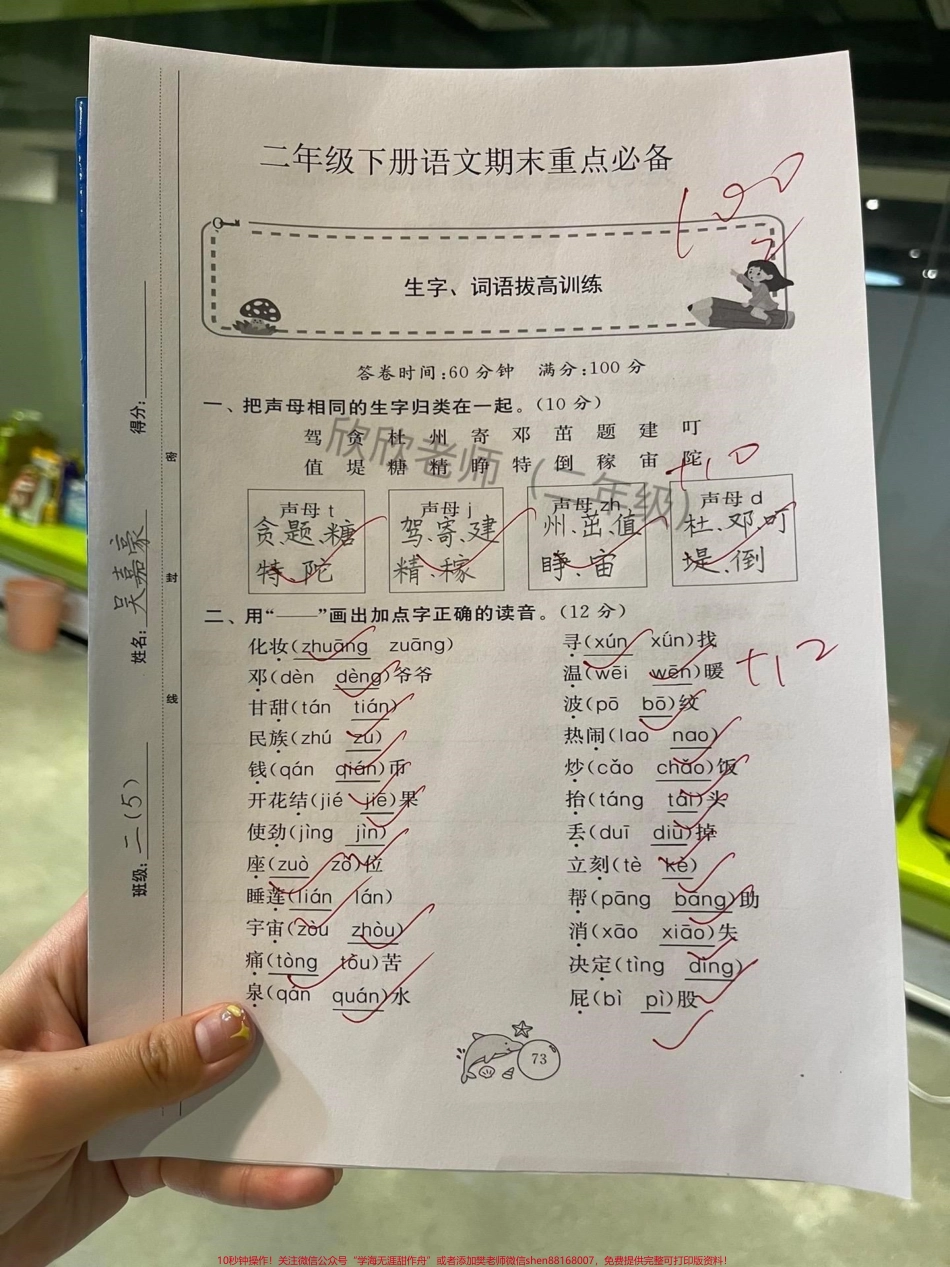 二年级下册语文期末重点必备
100
生字、词语拔高训练
答卷时间:60分钟 满分:100分
一、把声母相同的生字归类在一起。(10分)
驾 贪 杜 州 寄 邓 茁 题 建 叮
值 堤 糖 精 睁 特 倒 稼 宙 陀
+10
欣欣老师（二年级）
声母 t 声母 j 声母 zh 声母 d
贪、题、糖 驾、寄、建 州、茁、值 杜、邓、叮
特、陀 精、稼 睁、宙 堤、倒
二、用“——”画出加点字正确的读音。(12分)
+12
化妆(zhuāng zuāng) 寻(xún xǘn)找
邓(dèn dèng)爷爷 温(wēi wēn)暖
甘甜(tán tián) 波(pō bō)纹
民族(zhú zú) 热闹(lao nao)
钱(qán qián)币 炒(cǎo chǎo)饭
开花结(jié jiē)果 抬(táng tái)头
使劲(jìng jìn) 丢(duī diū)掉
座(zuò zǒ)位 立刻(tè kè)
睡莲(lián lán) 帮(pāng bāng)助
宇宙(zòu zhòu) 消(xāo xiāo)失
痛(tòng tǒu)苦 决定(tìng dìng)
泉(qán quán)水 屁(bì pì)股
73
得分:
姓名: 吴嘉豪
班级: 二(5)
密
封
线
10秒钟操作！关注微信公众号“学海无涯甜作舟”或者添加樊老师微信shen88168007，免费提供完整可打印版资料！